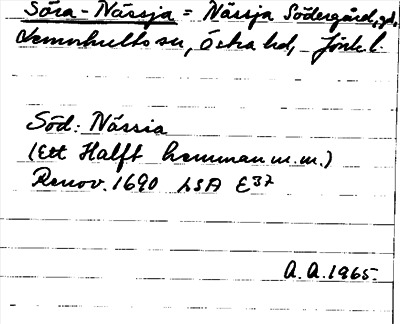 Söra - Nässja = Nässja Södergård, gd,
Lemnhults sn, Östra hd, Jönk. l.
Söd: Nässia
(Ett Halft hemman m.m.)
Renov. 1690 LSA E37
A. A. 1965.